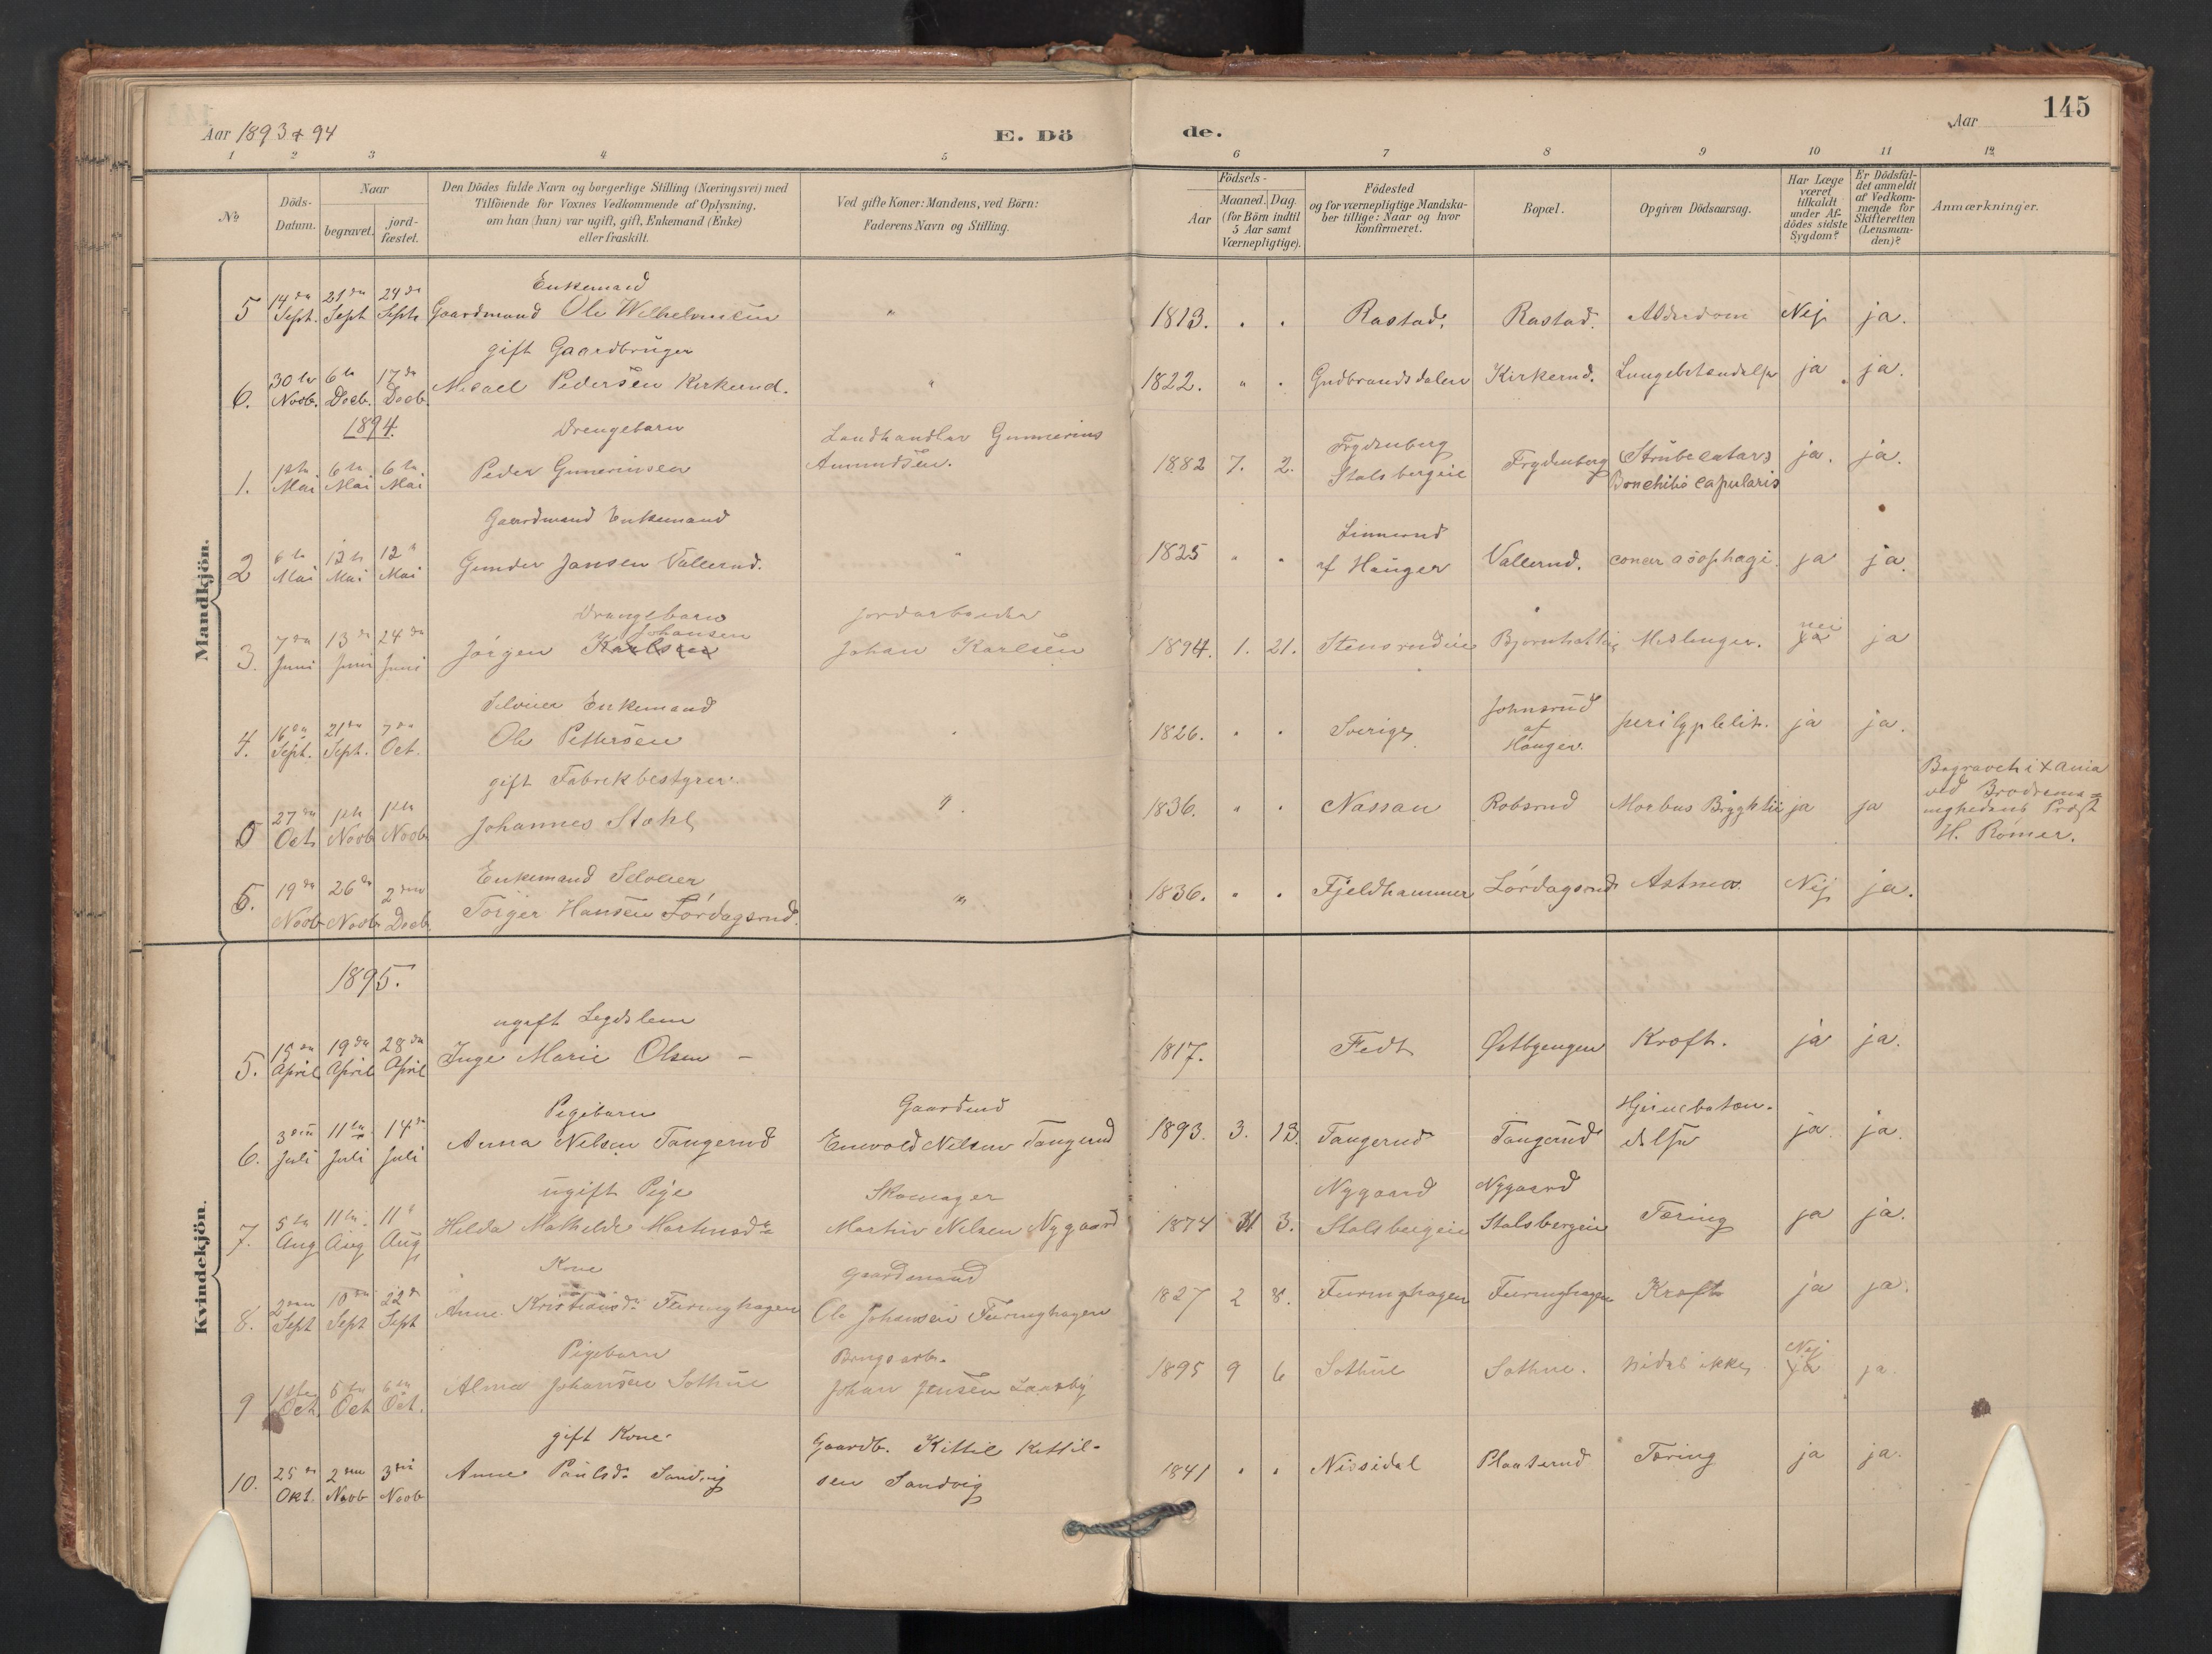 145
Aar 1893 & 94
E. Dö
de.
Aar
1 2 3 4 5 6 7 8 9 10 11 12
No
Döds-
Datum.
Naar
begravet.
jord-
fæstet.
Den Dödes fulde Navn og borgerlige Stilling (Næringsvei) med
Tilföiende for Voxnes Vedkommende af Oplysning,
om han (hun) var ugift, gift, Enkemand (Enke)
eller fraskilt.
Ved gifte Koner: Mandens, ved Börn:
Faderens Navn og Stilling.
Födsels-
Aar
Maaned. Dag.
(for Börn indtil
5 Aar samt
Værnepligtige).
Födested
og for værnepligtige Mandska-
ber tillige: Naar og hvor
konfirmeret.
Bopæl.
Opgiven Dödsaarsag.
Har Læge
været
tilkaldt
under Af-
dödes sidste
Sygdom?
Er Dödsfal-
det anmeldt
af Vedkom-
mende for
Skifteretten
(Lensman-
den)?
Anmærkninger.
Mandkjön.
Enkemand
5 14de Sept. 21de Sept 24de Septr Gaardmand Ole Wilhelmsen " 1813. " " Rastad. Rastad. Alderdom Nej ja.
gift Gaardbruger
6. 30te Novb. 6te Decb. 17de Decb. Micael Pedersen Kirkerud. " 1822. " " Gudbrandsdalen Kirkerud. Lungebetændelse ja ja.
1894.
Drengebarn
Landhandler Gunnerius
Frydenberg
1. 1ste Mai 6te Mai 6te Mai Peder Gunneriusen Amundsen. 1882 7. 2. Stalsbergeie Frydenberg Strubecatarr ja. ja.
Bronchitis capularis
Gaardmand Enkemand
Linnerud
2 6te Mai 12te Mai 12te Mai Gunder Jansen Vallerud. " 1825 " " af Hauger Vallerud. ja ja.
Drengebarn
Johansen
Jordarbeider
nei
3. 7de Juni 13de Juni 24de Juni Jörgen Karlsen Johan Karlsen 1894. 1. 21. Stensrudeie Meslinger. ja ja
Selveier Enkemand
Johnsrud
4. 16de Sept. 21de Sept. 7de Oct. Ole Pettersen " 1826. " " Sverige af ja ja.
Hauger.
gift Fabrikbestyrer.
5 27de Oct. 1ste Novb 1ste Novb Johannes Stahl " 1836. " " Nassau Robsrud Morbus Brygktii ja ja
Begravet i Xania
ved Brödreme-
nighedens Præst
H. Römer.
Enkemand Selveier
6. 19de Novb 26de Novb 2den Decb. Torger Hansen Lördagsrud. " 1836. " " Fjeldhammer Lördagsrud Astma. Nej ja.
Kvindekjön.
1895.
ugift Legdslem
5. 15de April 19de April 28de April Inge Marie Olsen - 1817. Fedt Østbyengen Kræft. ja ja.
Pigebarn
Gaardmd
Hjernebetæn-
6. 3die Juli 11te Juli 14de Juli Anna Nelsen Tangerud Enevold Nelsen Tangerud 1893. 3. 13. Tangerud Tangerud delse ja. ja.
ugift Pige
Skomager
Nygaard
Nygaard
7. 5te Aug 11te Aug 11te Aug Hilda Mathilde Martinsd. Martin Nelsen Nygaard 1874 3. Stalsbergeie Stalsbergeie Tæring ja ja.
Kone
Gaardmand
8. 2den Sept 10de Sept 22de Sept Anne Kristiansd. Furinghagen Ole Johansen Furinghagen 1827 2 8. Furinghagen Furinghagen Kræft ja ja.
Pigebarn
Brugsarb.
Nej
9 1ste Oct. 6te Oct 6te Oct. Alma Johansen Sothue Johan Jensen 1895 9 6 Sothue Sothue. vides ikke ja ja.
gift Kone.
Gaardb. Kittil Kittil-
10. 25de Okt. 2den Novb 3die Novb Anne Paulsd. Sandvig sen Sandvig 1841 " " Nissedal Plaaterud Tæring ja ja.